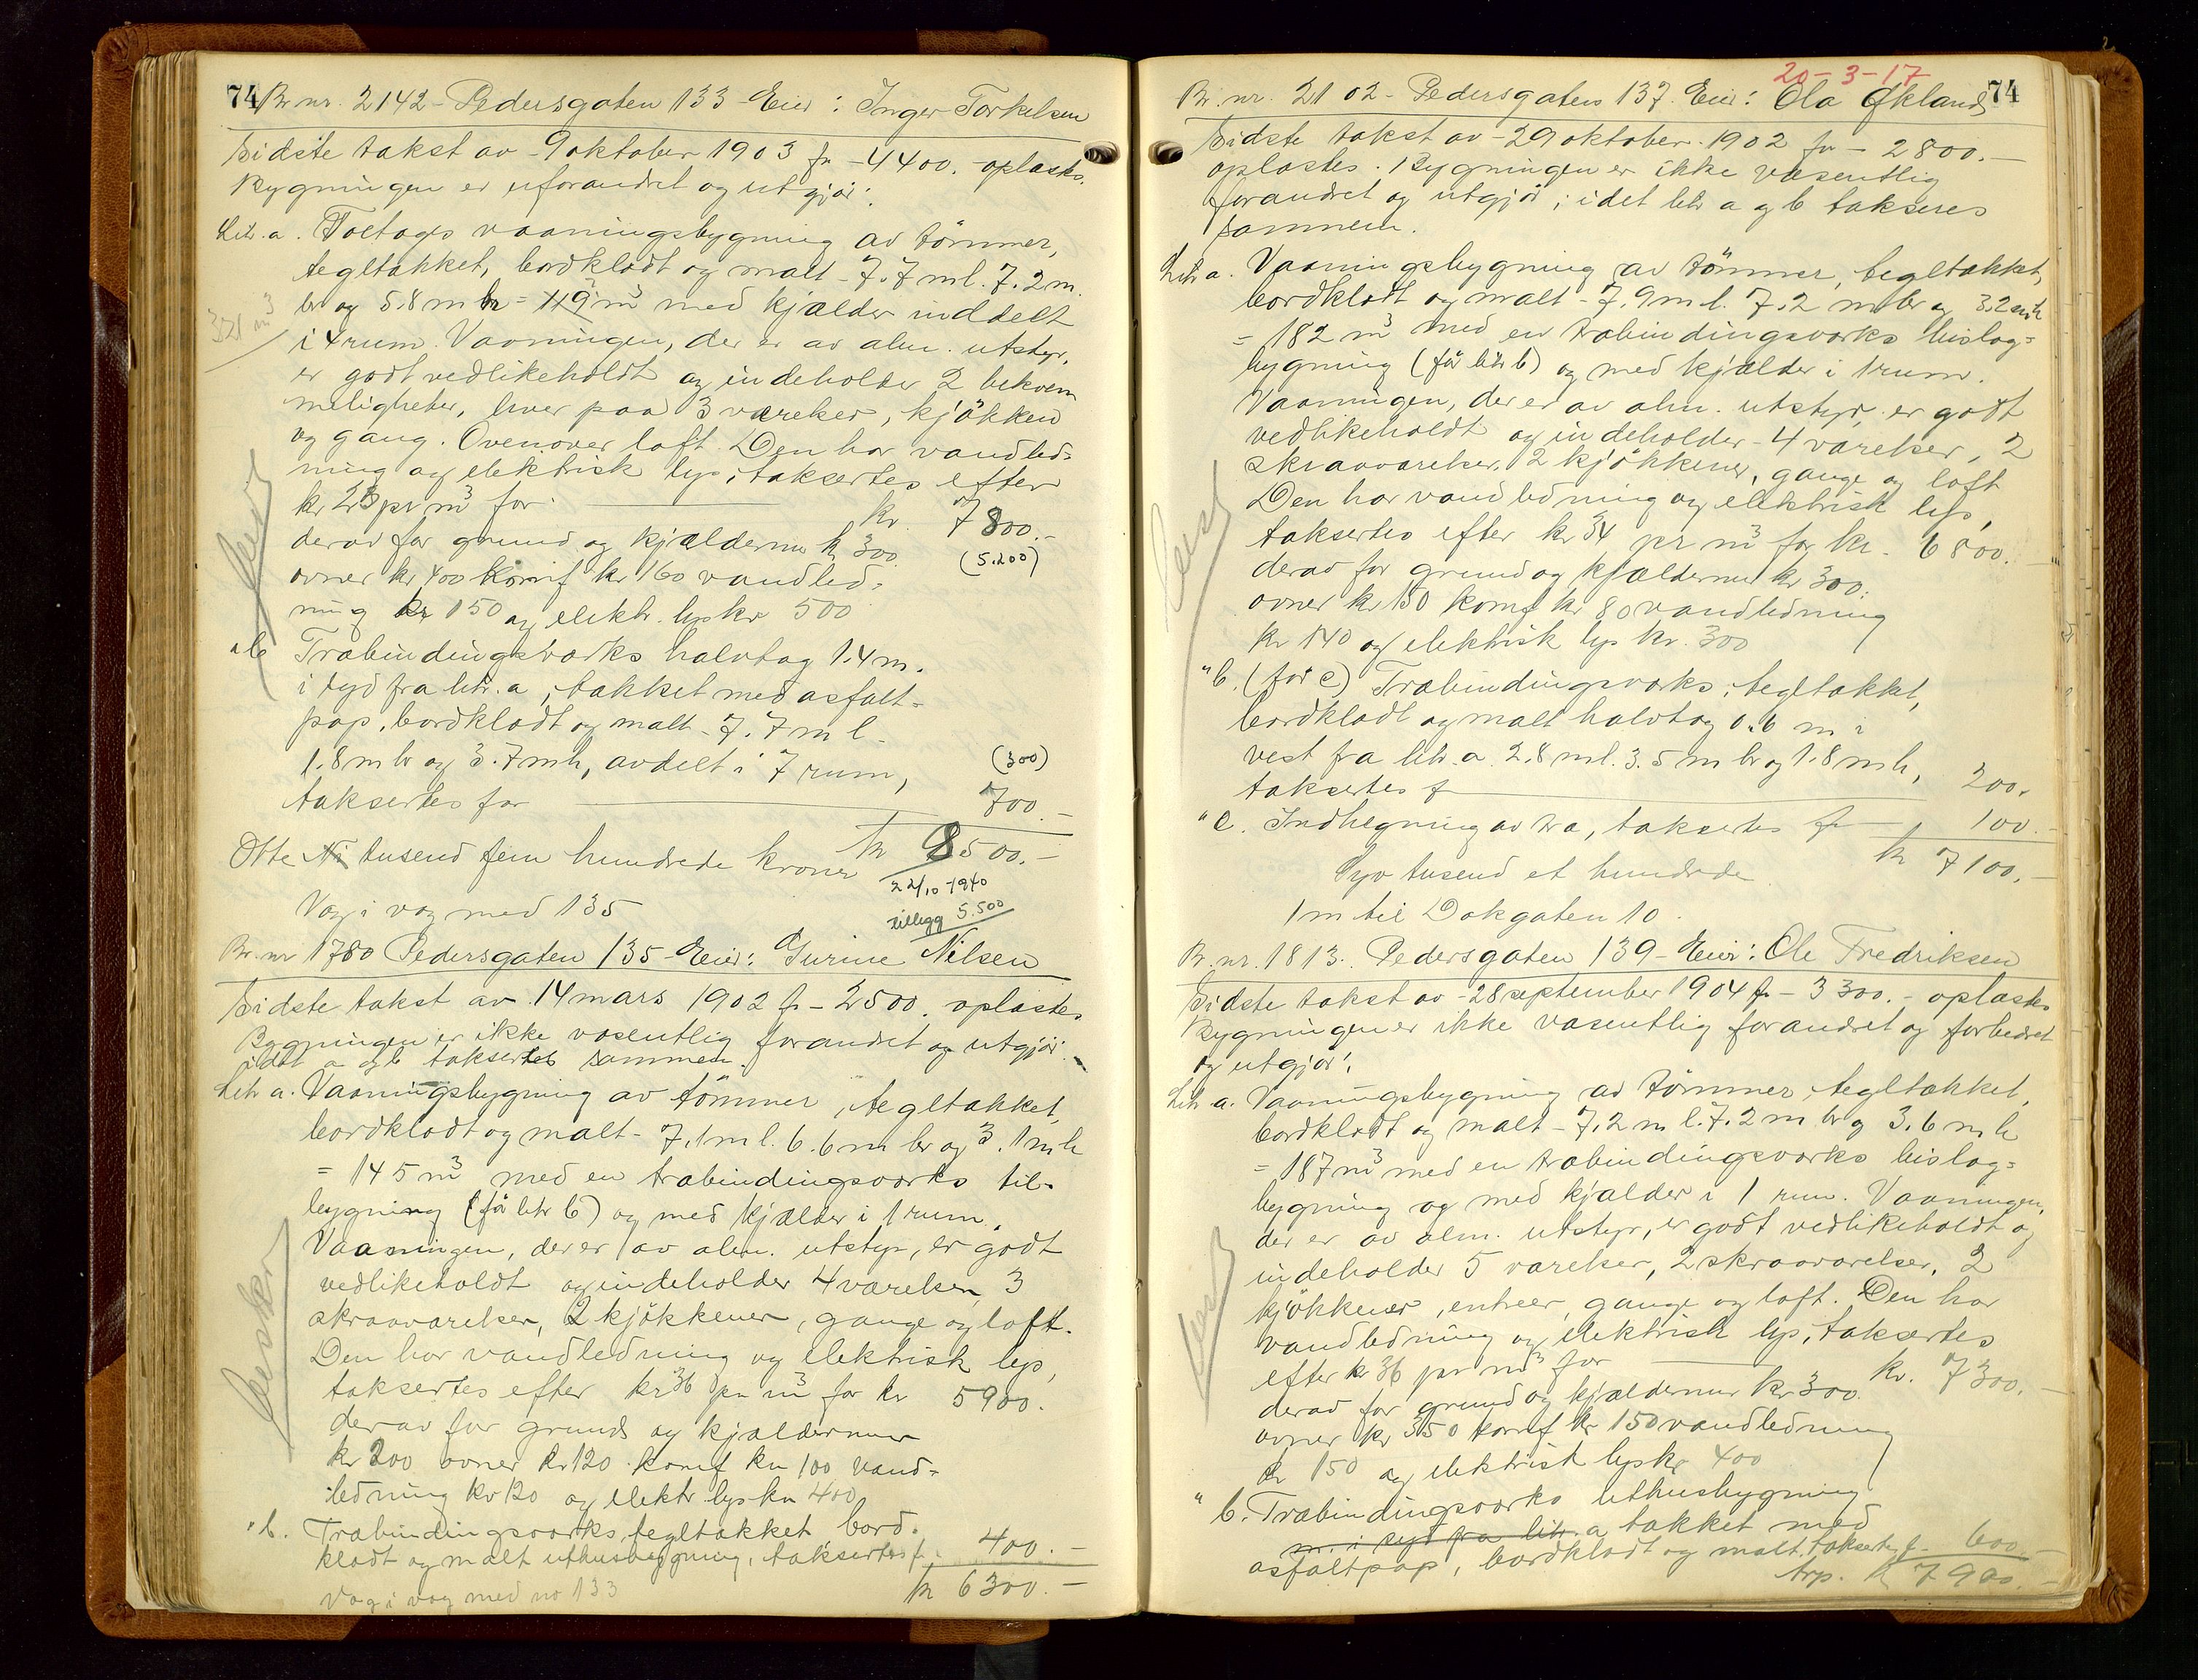 74 Br nr. 2142 - Pedersgaten 133 - Eier: Inger Torkelsen
Sidste takst av - 9 oktober 1903 fr - 4400. - oplæstes.
Bygningen er uforandret og utgjör:
Litr. a. Toetages vaaningsbygning av tömmer,
tegltækket, bordklædt og malt - 7.7 m l. 7.2 m.
br og 5.8 m h = m³ med kjælder inddelt
321 m³
i 4 rum. Vaaningen, der er av alm. utstyr,
er godt vedlikeholdt og indeholder 2 bekvem
meligheter, hver paa 3 værelser, kjökken
og gang. Ovenover loft. Den har vandled=
ning og elektrisk lys; taksertes efter
kr 23 pr m³ for kr. 7800.-
derav for grund og kjældermur kr 300. (5.200)
ovner kr 400 komf kr 160 vandled=
ning kr 150 og elektr. lys kr 500
" b Træbindingsværks halvtag 1.4 m.
i syd fra litr. a, tækket med asfalt=
pap, bordklædt og malt - 7.7 m l -
1.8 m br og 3.7 m h, avdelt i 7 rum, (300)
taksertes for 700.-
Otte Ni tusend fem hundrede kroner kr 8500.-
22/10-1940
Væg i væg med 135 tillegg 5.500
Br. nr 1780 Pedersgaten 135 - Eier: Gurine Nilsen
Sidste takst av 14 mars 1902 fr - 2500. oplæstes
Bygningen er ikke væsentlig forandret og utgjör:
idet a og b taksertes sammen.
Litr a. Vaaningsbygning av tömmer, tegltækket,
bordklædt og malt - 7.1 m l. 6.6 m br og 3.1 m h
= 145 m³ med en træbindingsværks til=
bygning (för litr b) og med kjælder i 1 rum.
Vaaningen, der er av alm. utstyr, er godt
vedlikeholdt og indeholder 4 værelser, 3
skraaværelser, 2 kjökkener, gange og loft.
Den har vandledning og elektrisk lys,
taksertes efter kr 36 pr m³ for kr 5900.
derav for grund og kjældermur
kr 200 ovner kr 120 komf kr 100 vand=
ledning kr 120 og elektr lys kr 400
" b. Træbindingsværks, tegltækket bord=
klædt og malt uthusbygning, taksertes fr. 400.-
Væg i væg med no 133 kr 6300.-
20-3-17
Br. nr. 2102 - Pedersgaten 137. Eier: Ola Økland 74
Sidste takst av - 29 oktober 1902 fr - 2800.-
oplæstes. Bygningen er ikke væsentlig
forandret og utgjör; idet litr a og b takseres
sammen.
Litr a. Vaaningsbygning av tömmer, tegltækket,
bordklædt og malt - 7.9 m l. 7.2 m br og 3.2 m h
= 182 m³ med en træbindingsværks bislag=
bygning (för litr b) og med kjælder i 1 rum.
Vaaningen, der er av alm. utstyr, er godt
vedlikeholdt og indeholder - 4 værelser, 2
skraaværelser, 2 kjökkener, gange og loft
Den har vandledning og elektrisk lys,
taksertes efter kr 34 pr m³ for kr. 6800.-
derav for grund og kjældermur kr 300.
ovner kr 150 komf kr 80 vandledning
kr 140 og elektrisk lys kr. 300
" b. (för c) Træbindingsværks, tegltækket,
bordklædt og malt halvtag 0.6 m i
vest fra litr. a 2.8 m l. 3.5 m br og 1.8 m h,
taksertes f 200.
" c. Indhegning av træ, taksertes fr 100.-
Syv tusend et hundrede kr 7100.-
1 m til Dokgaten 10.
Br. nr. 1813. Pedersgaten 139 - Eier: Ole Fredriksen
Sidste takst av - 28 september 1904 fr - 3300.- oplæstes
Bygningen er ikke væsentlig forandret og forbedret
og utgjör:
Litr a. Vaaningsbygning av tömmer, tegltækket,
bordklædt og malt - 7.2 m l. 7.2 m br og 3.6 m h
= 187 m³ med en træbindingsværks bislag=
bygning og med kjælder i 1 rum. Vaaningen,
der er av alm. utstyr, er godt vedlikeholdt og
indeholder 5 værelser, 2 skraaværelser, 2
kjökkener, entreer, gange og loft. Den har
vandledning og elektrisk lys, taksertes
efter kr 36 pr m³ for kr. 7300.-
derav for grund og kjældermur kr 300.
ovner kr 350 komf kr 150 vandledning
kr 150 og elektrisk lys kr 400
" b. Træbindingsværks uthusbygning
m. i syd fra litr. a tækket med
asfaltpap, bordklædt og malt, taksertes f. 600.-
trp. kr 7900.-